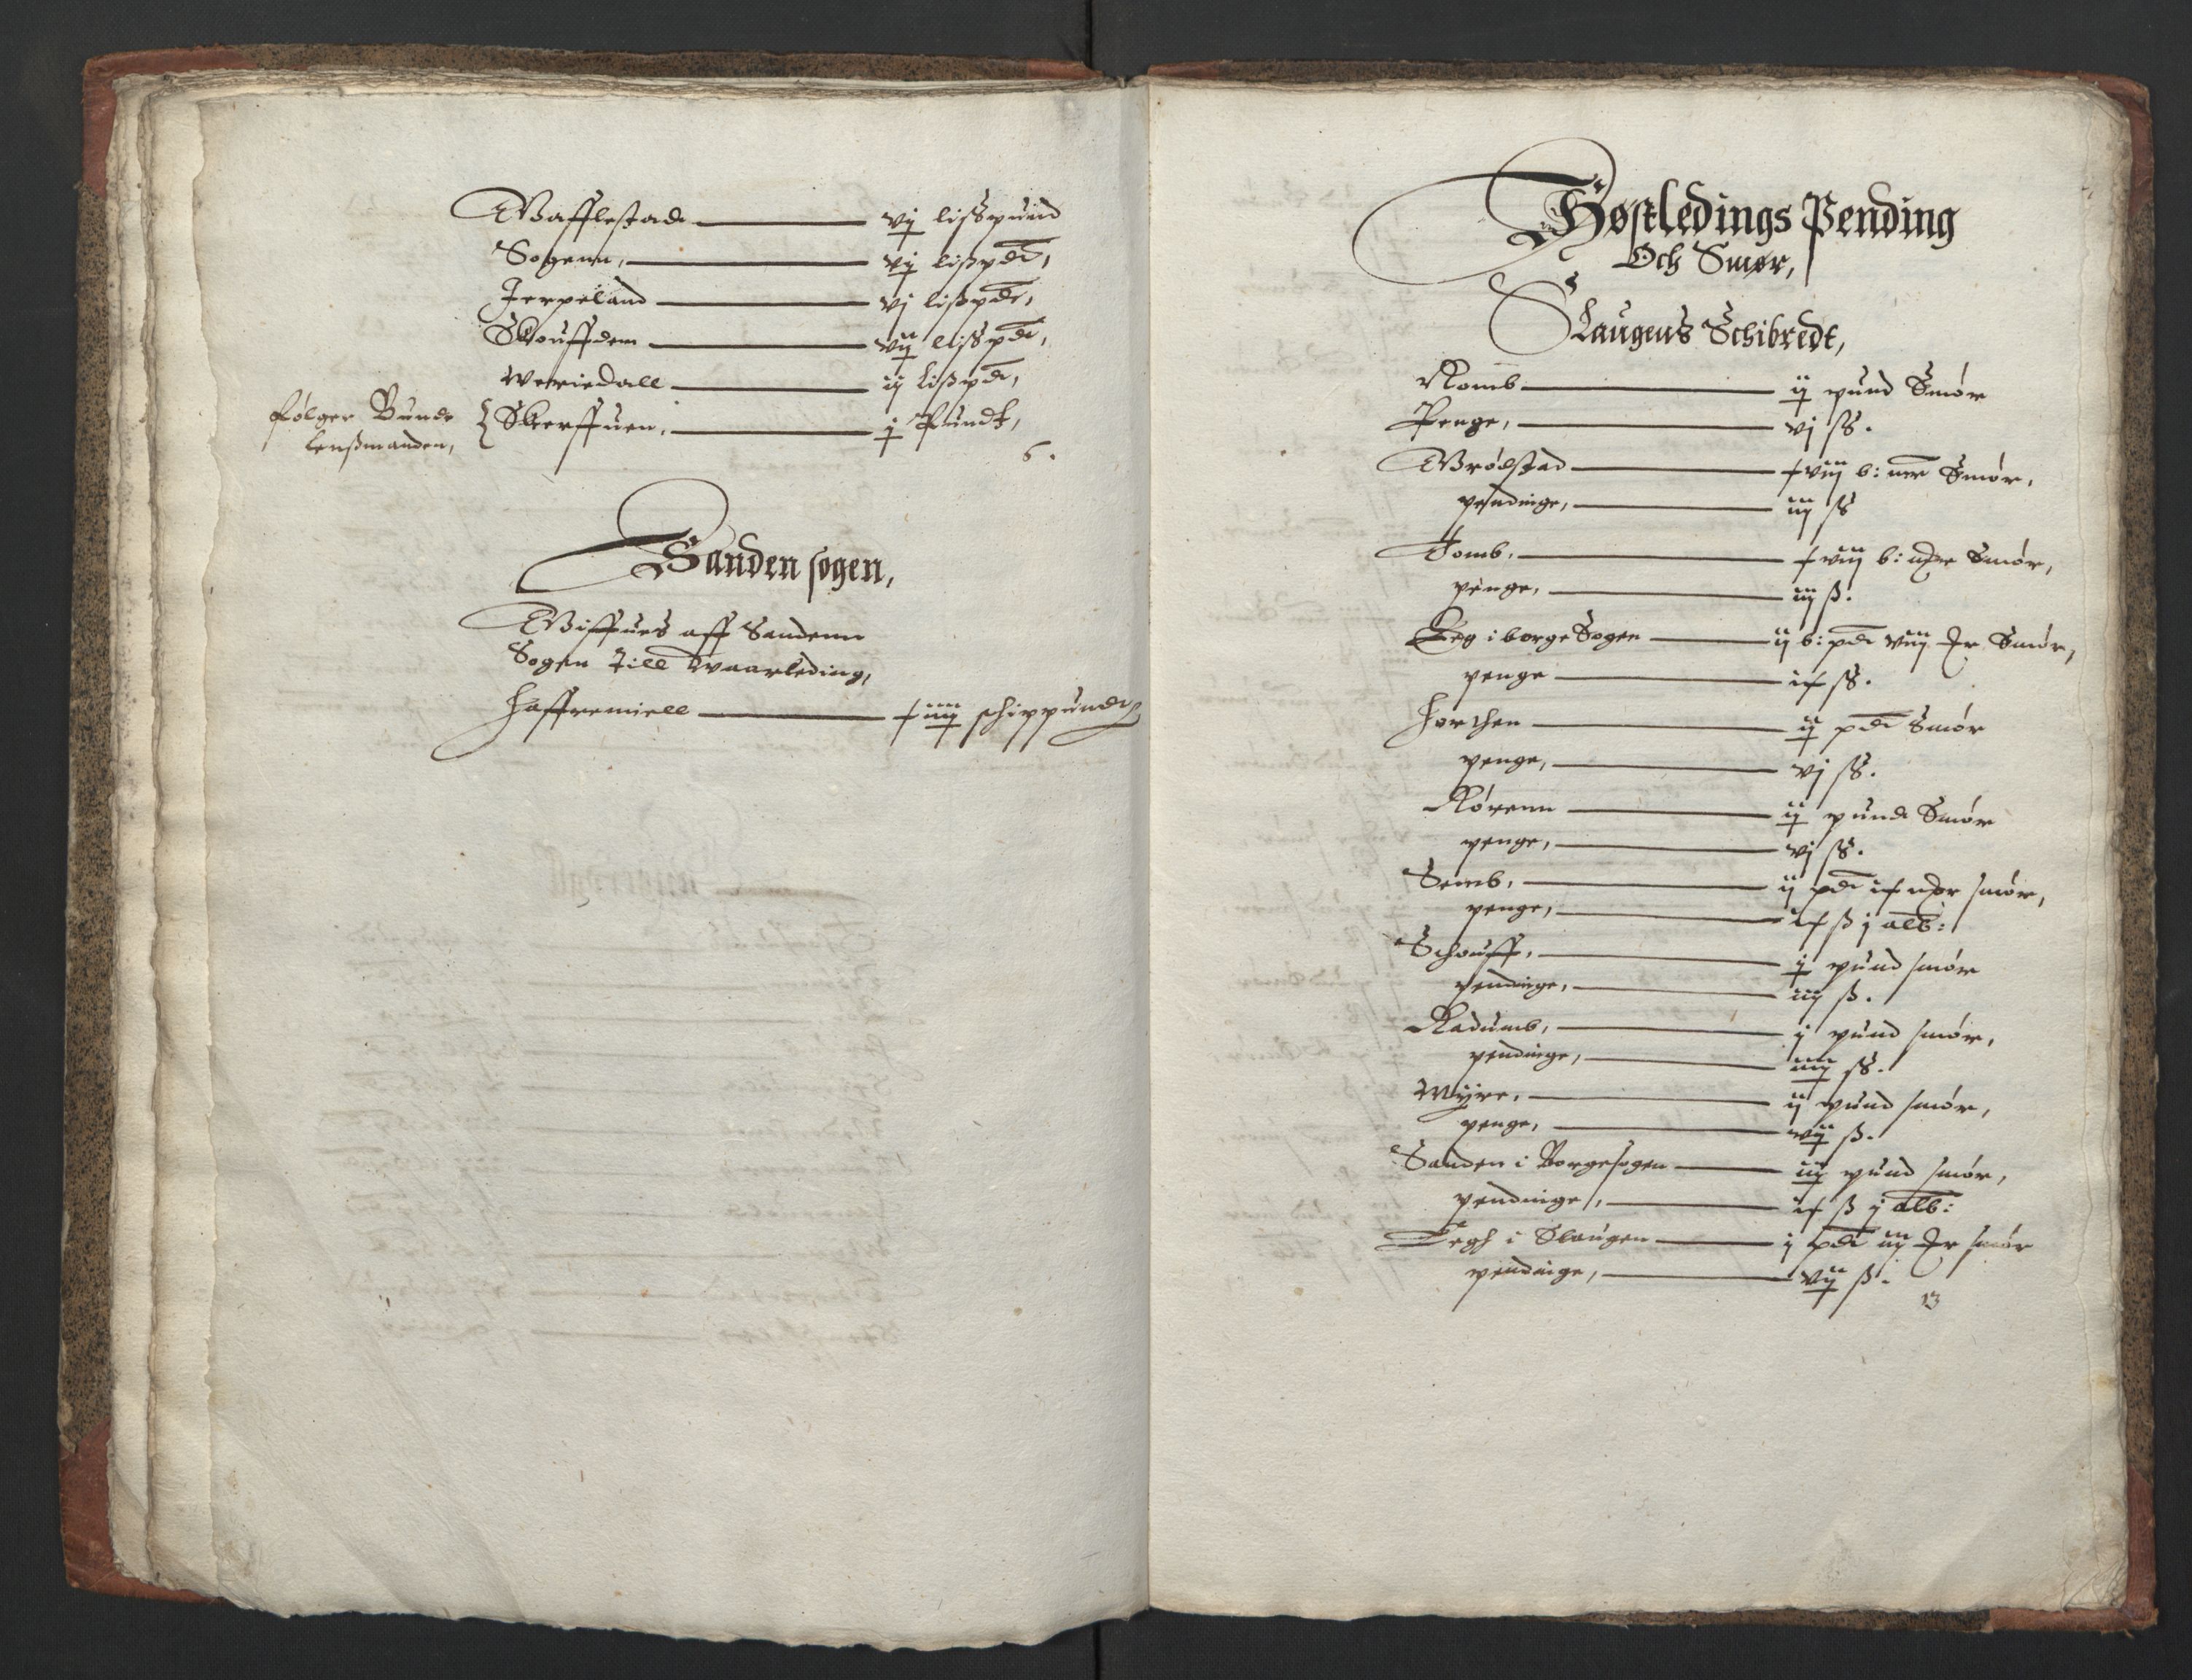 Wafflestadt — vij lisspund
Sogenn, — vij lisspd,
Jerpeland — vj lisspd,
Skouffdem — vij lisspd,
Weriedall — ij lisspd,
følger Bunde lenssmanden, { Skerffuen, — j Pundt,
6.
Sanden sogen,
Giffues aff Sandenn
Sogen till Waarleding,
Haffremiell — f iiij schippundt
Høstledings Pending
Och Smør,
Slaugens Schibredt,
Romb — ij pund Smør
Penge, — vj ss.
Brødstad — f viij b: mer Smør,
pendinge, — iij ss
Tomb, — f viij b: mer Smør,
penge, — iij ss.
Teg i borge Sogen — ij b: pd viij Er Smør,
penge — if ss.
Horchen — ij pd Smør
penge, — vj ss.
Rørenn — ij pund Smør
penge, — vj ss.
Semb, — ij pd if mer smør,
penge, — if ss j alb:
Schouff, — j pund smør
pendinge, — iij ss.
Radumb, — j pund smør,
pendinge, — iiij ss.
Myre, — ij pund smør,
penge, — vij ss.
Sanden i Borgesogen — iij pund smør,
pendinge, — if ss j alb:
Tegh i Slaugen — j pd iij Er smør
pendinge, — vij ss.
13